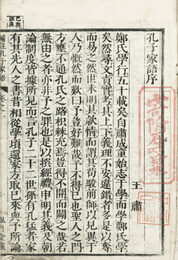 孔子家語序
王肅
鄭氏學行五十載矣自肅成童始志于學而學鄭氏學
矣然尋文責實考其上下義理不安違錯者多是以奪
而易之然世未明其款情而謂其苟駁前師以見異于
人乃慨然而歎曰予豈好難哉予不得已也聖人之門
方壅不通孔氏之路枳棘充焉豈得不開而闢之哉若
無由之者亦非予之罪也是以撰經禮申明其義及朝
論制度皆據所見而言孔子二十二世孫有孔猛者家
有其先人之書昔相從學頃還家方取已來與予所論